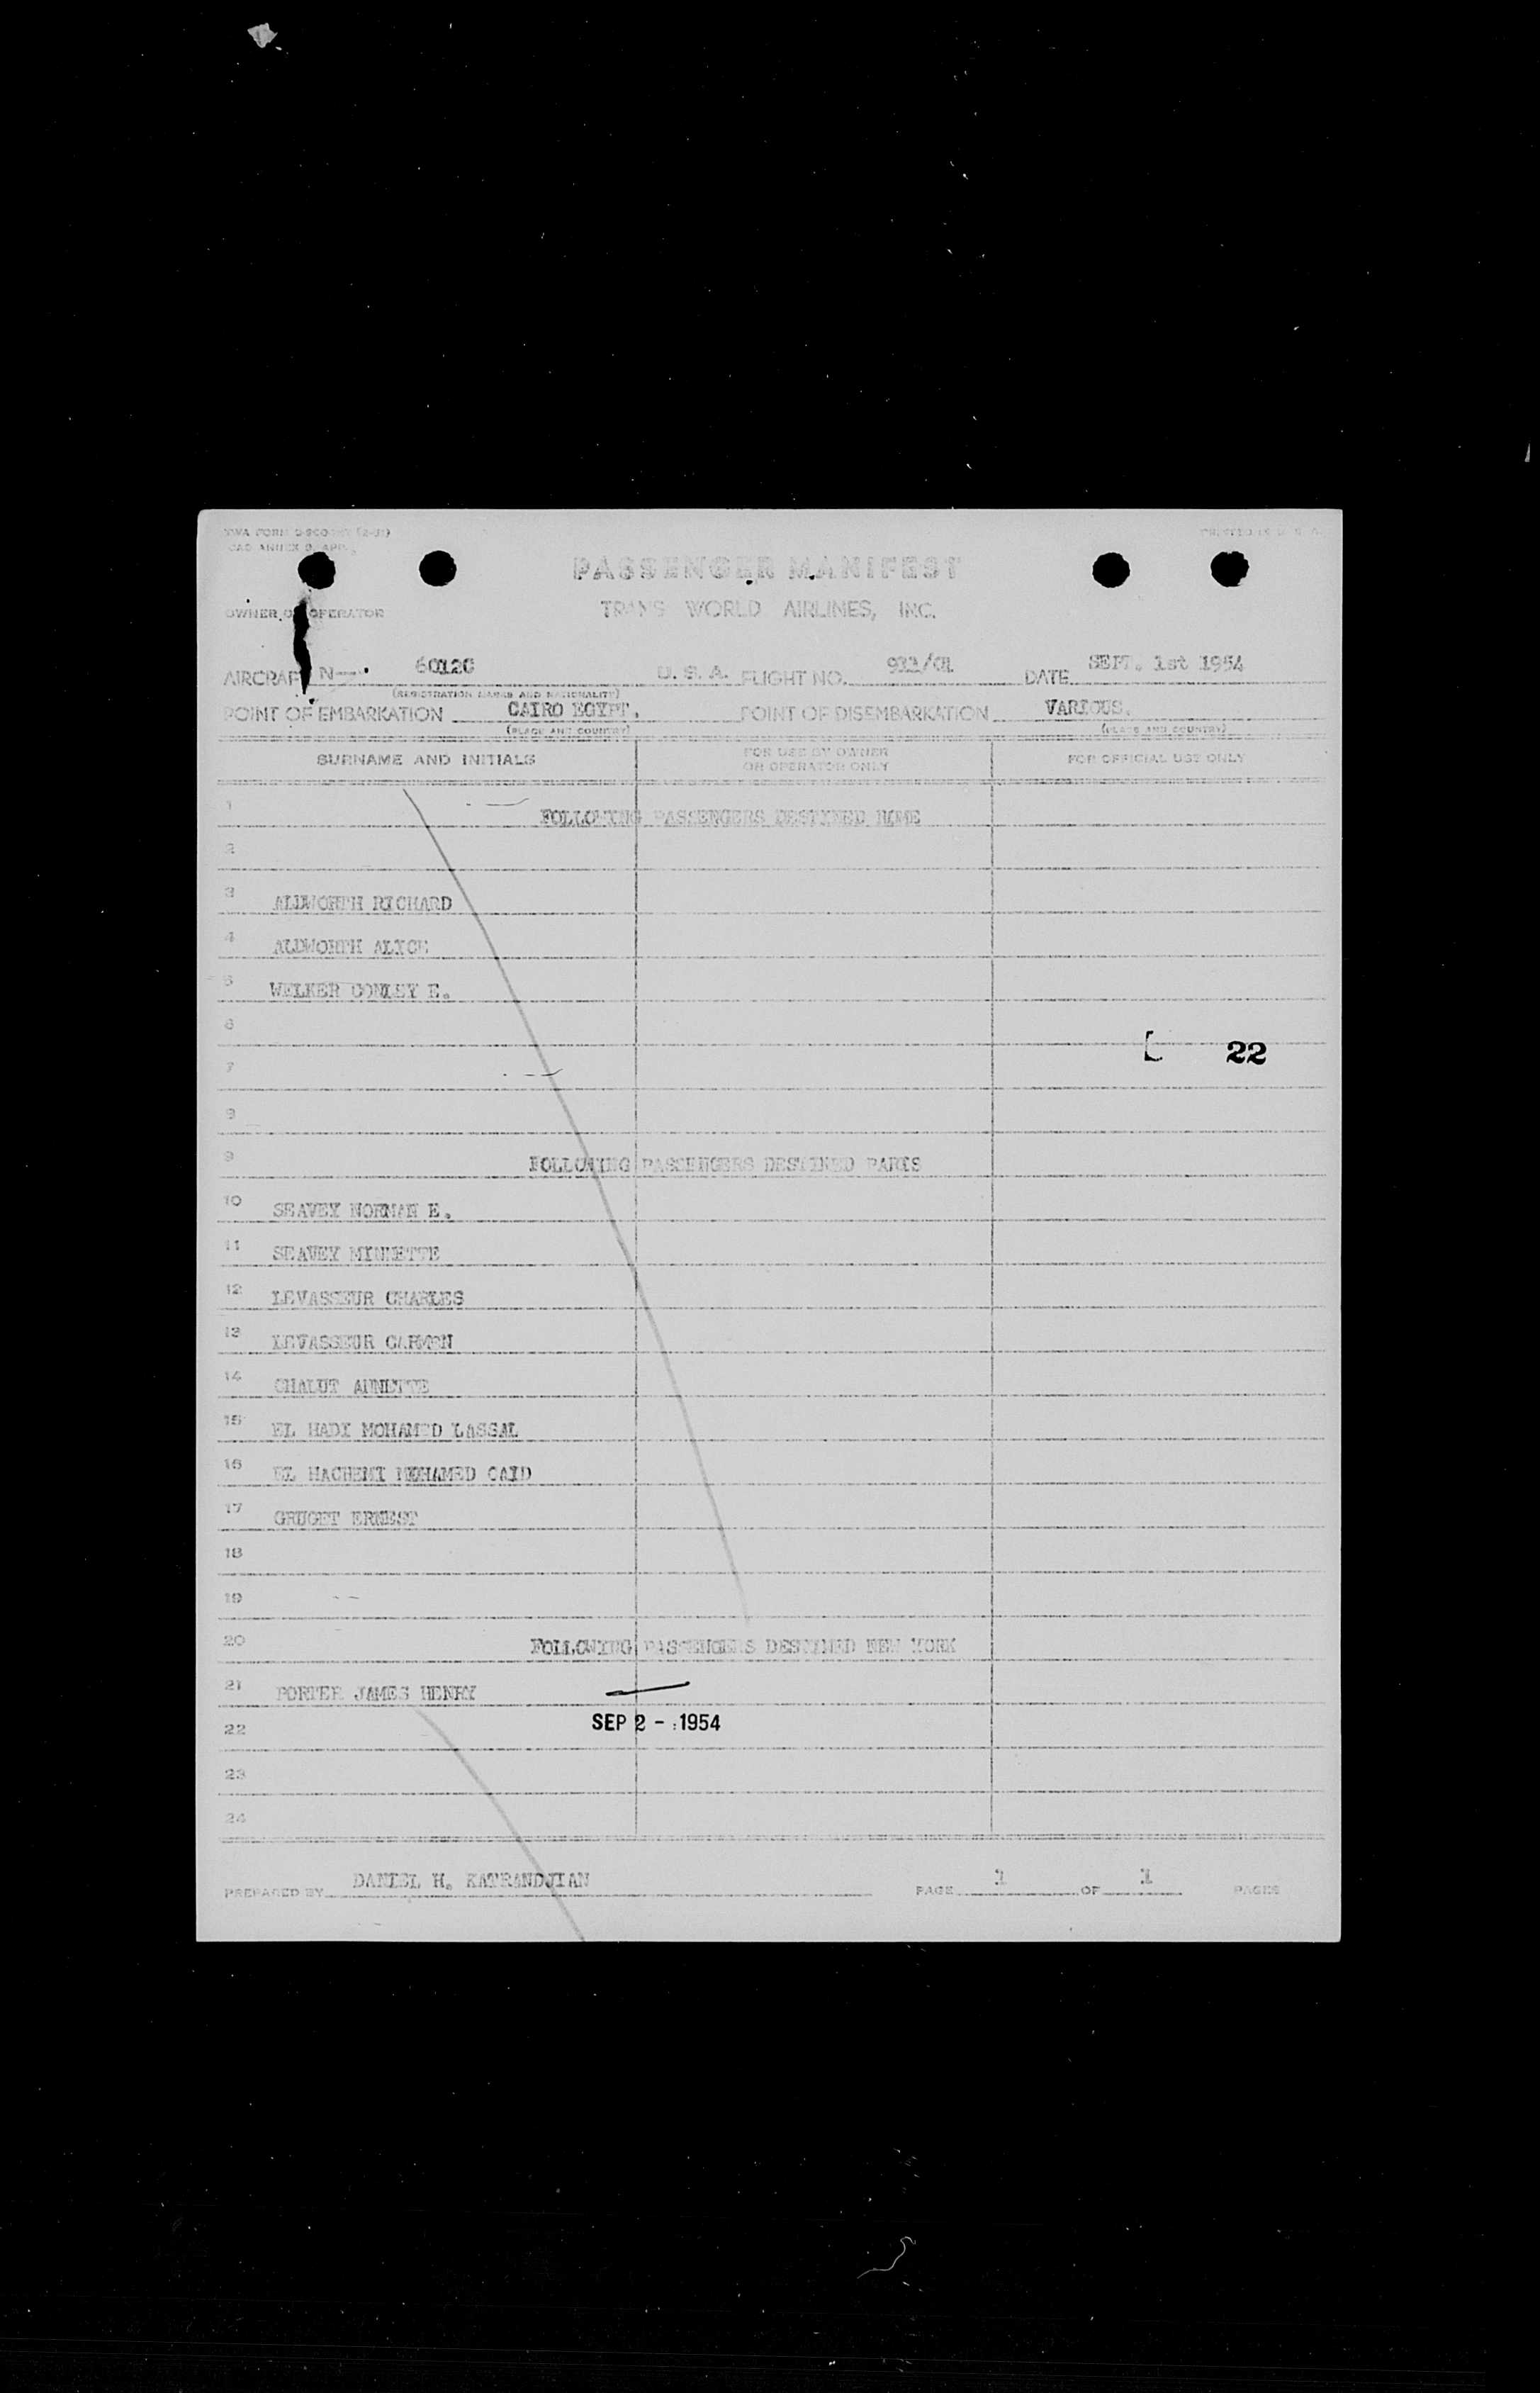 PRINTED IN U. S. A.
PASSENGER MANIFEST
OWNER OR OPERATOR TRANS WORLD AIRLINES, INC.
AIRCRAFT N— 6012C U. S. A. FLIGHT NO. 911/01 DATE SEPT. 1st 1954
(REGISTRATION MARKS AND NATIONALITY)
POINT OF EMBARKATION CAIRO EGYPT. POINT OF DISEMBARKATION VARIOUS.
(PLACE AND COUNTRY) (PLACE AND COUNTRY)
SURNAME AND INITIALS FOR USE BY OWNER OR OPERATOR ONLY FOR OFFICIAL USE ONLY
1 FOLLOWING PASSENGERS DESTINED ROME
2
3 ALLWORTH RICHARD
4 ALLWORTH ALICE
5 WELKER CONLEY E.
6
22
7
8
9 FOLLOWING PASSENGERS DESTINED PARIS
10 SEAVEY NORMAN E.
11 SEAVEY MINNETTE
12 LEVASSEUR CHARLES
13 LEVASSEUR CARMEN
14 CHALUT ANNETTE
15 EL HADI MOHAMED LASSAL
16 EL HACHEMI MOHAMED CAID
17 GRUGET ERNEST
18
19
20 FOLLOWING PASSENGERS DESTINED NEW YORK
21 PORTER JAMES HENRY
22 SEP 2 - 1954
23
24
PREPARED BY DANIEL H. KATRANDJIAN PAGE 1 OF 1 PAGES